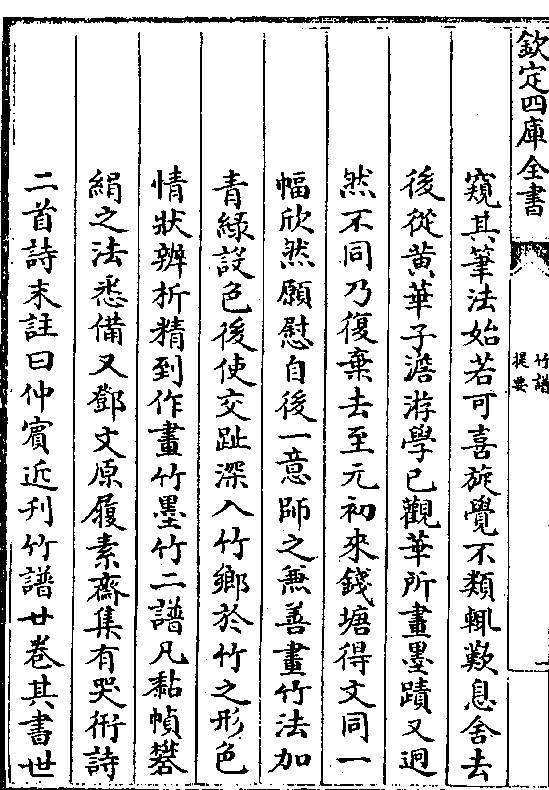 欽定四庫全書
竹譜
提要
窺其筆法始若可喜旋覺不類輒歎息舍去
後從黄華子澹游學已觀華所畫墨蹟又迥
然不同乃復棄去至元初來錢塘得文同一
幅欣然願慰自後一意師之兼善畫竹法加
青綠設色後使交趾深入竹鄉於竹之形色
情狀辨析精到作畫竹墨竹二譜凡黏幀礬
絹之法悉備又鄧文原履素齋集有哭衎詩
二首詩末註曰仲賓近刋竹譜廿卷其書世